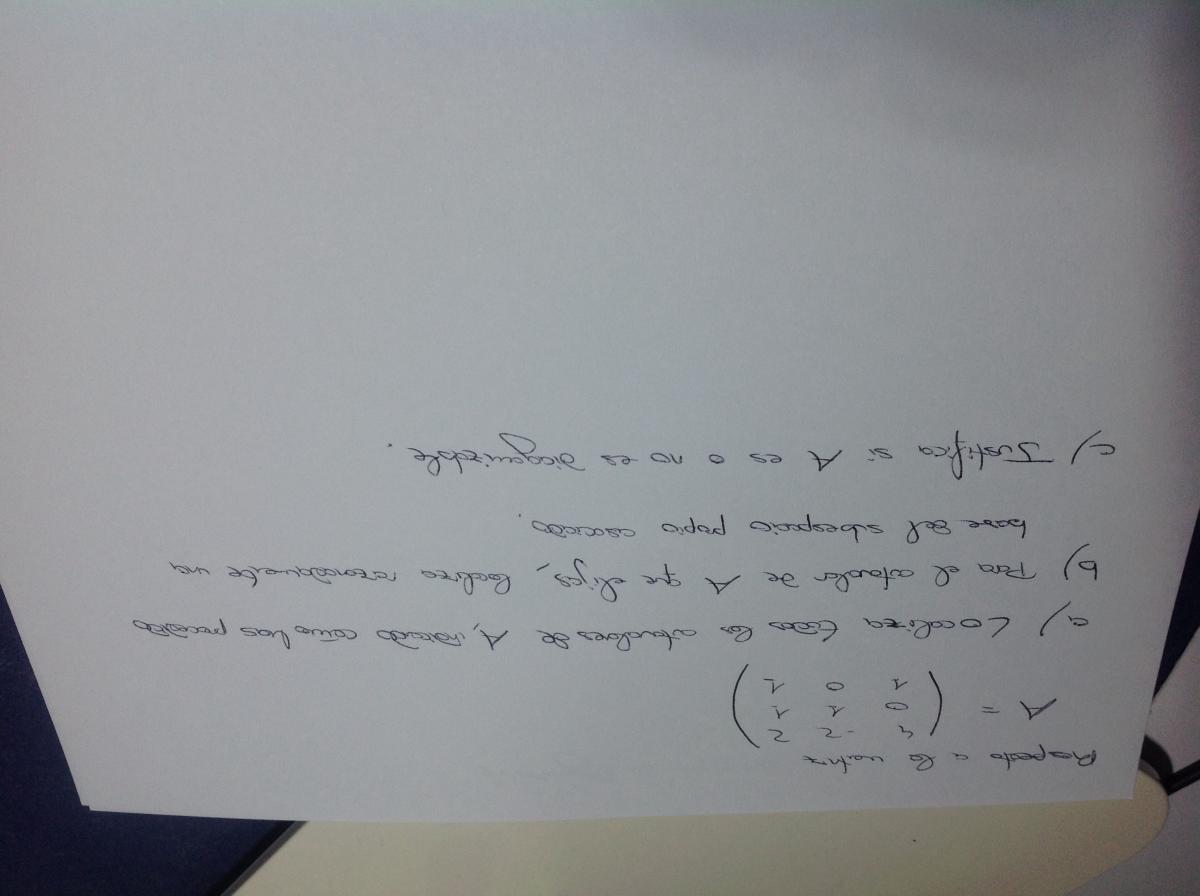 Respecto a la matriz
A = ( 4 -2 2
0 1 1
1 0 1 )
a) Localiza todos los autovalores de A, indicando cómo has procedido
b) Para el autovalor de A que elijas, localiza razonadamente una
base del subespacio propio asociado.
c) Justifica si A es o no es diagonalizable.